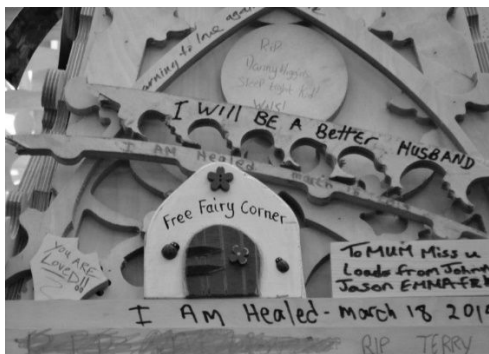 rning to love again
RIP
Danny Higgins
Sleep tight
I WILL BE A Better HUSBAND
I AM Healed march
Free Fairy Corner
YOU ARE
LOVED!!
To MUM Miss u
Loads from John
Jason EMMA
I AM Healed - March 18 201
RIP TERRY